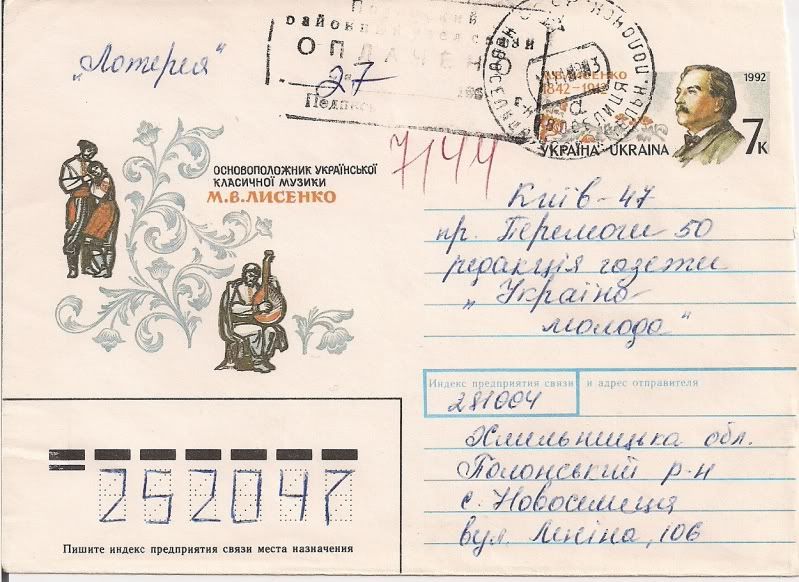 „Лотерея"
районный узел связи
ОПЛАЧЕНО
27
Подпись
М.В.ЛИСЕНКО
1842-1912
1992
7к
УКРАЇНА·UKRAINA
7144
ОСНОВОПОЛОЖНИК УКРАЇНСЬКОЇ
КЛАСИЧНОЇ МУЗИКИ
М.В.ЛИСЕНКО
Київ-47
пр. Перемоги 50
редакція газети
„Україна
молода"
Индекс предприятия связи и адрес отправителя
281004
Хмельницька обл.
Полонський р-н
с. Новоселиця
вул. Леніна, 106
252047
Пишите индекс предприятия связи места назначения